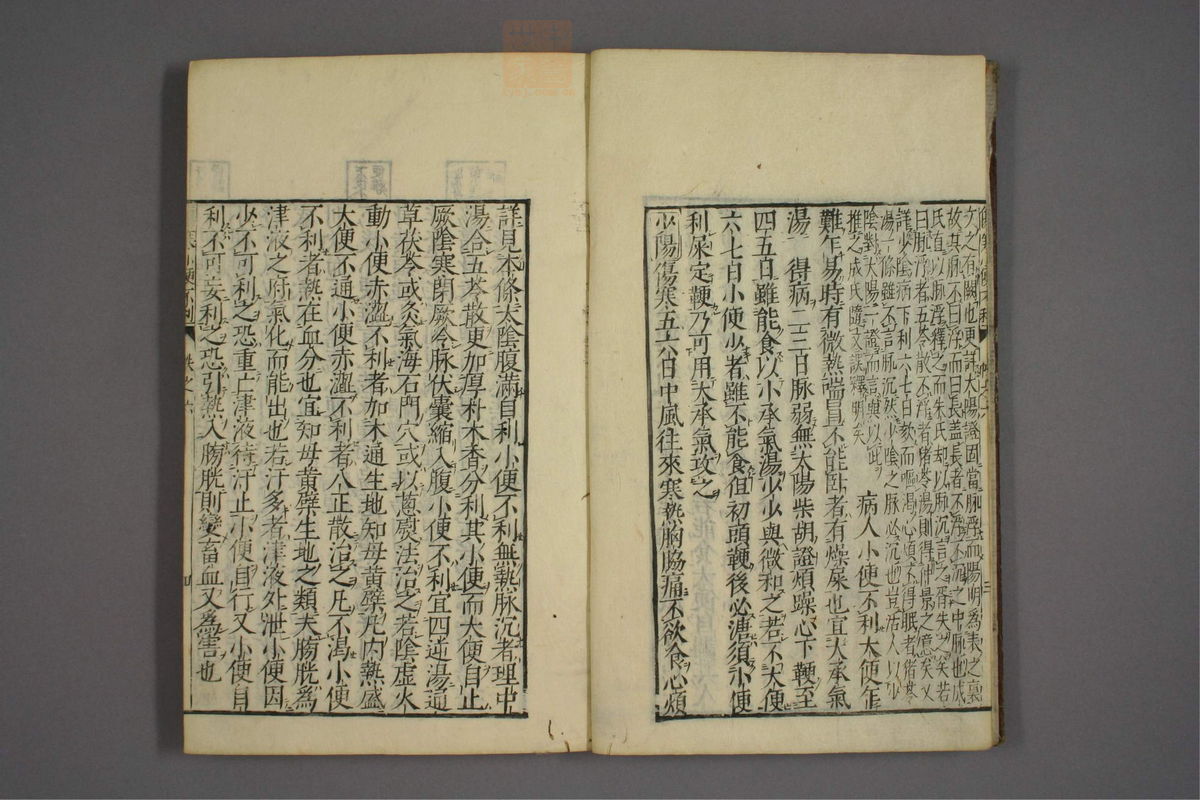 文之有闕也更詳太陽證因當脉浮而陽明為表之裏
故其脉不曰浮而曰長盖長者不浮不沉之中脉也成
氏直以脉浮釋之而朱氏却以脉沉言之胥失之矣若
曰脉浮者五苓散不浮者猪苓湯則得仲景之意矣又
詳少陰病下利六七日欬而嘔渴心煩不得眠者猪苓
湯一條雖不言脉沉然少陰之脉必沉也豈活人以少
陰對太陽一證而言與以此
推之成氏隨文誤釋明矣
病人小便不利大便乍
難乍易時有微熱喘冒不能卧者有燥屎也宜大承氣
湯 得病二三日脉弱無太陽柴胡證煩躁心下鞕至
四五日雖能食以小承氣湯少少與微和之若不大便
六七日小便少者雖不能食但初頭鞕後必溏須小便
利屎定鞕乃可用大承氣攻之
少陽傷寒五六日中風往來寒熱胸脇痛不欲食心煩
詳見本條太陰腹滿自利小便不利無熱脉沉者理中
湯合五苓散更加厚朴木香分利其小便而大便自止
厥陰寒閉厥冷脉伏囊縮入腹小便不利宜四逆湯通
草茯苓或灸氣海石門穴或以葱熨法治之若陰虛火
動小便赤澀不利者加木通生地知母黄蘗凡内熱盛
大便不通小便赤澀不利者八正散治之凡不渴小便
不利者熱在血分也宜知母黄蘗生地之類夫膀胱為
津液之府氣化而能出也若汗多者津液外泄小便因
少不可利之恐重亡津液待汗止小便自行又小便自
利不可妄利之恐引熱入膀胱則變畜血又為害也
小便不利